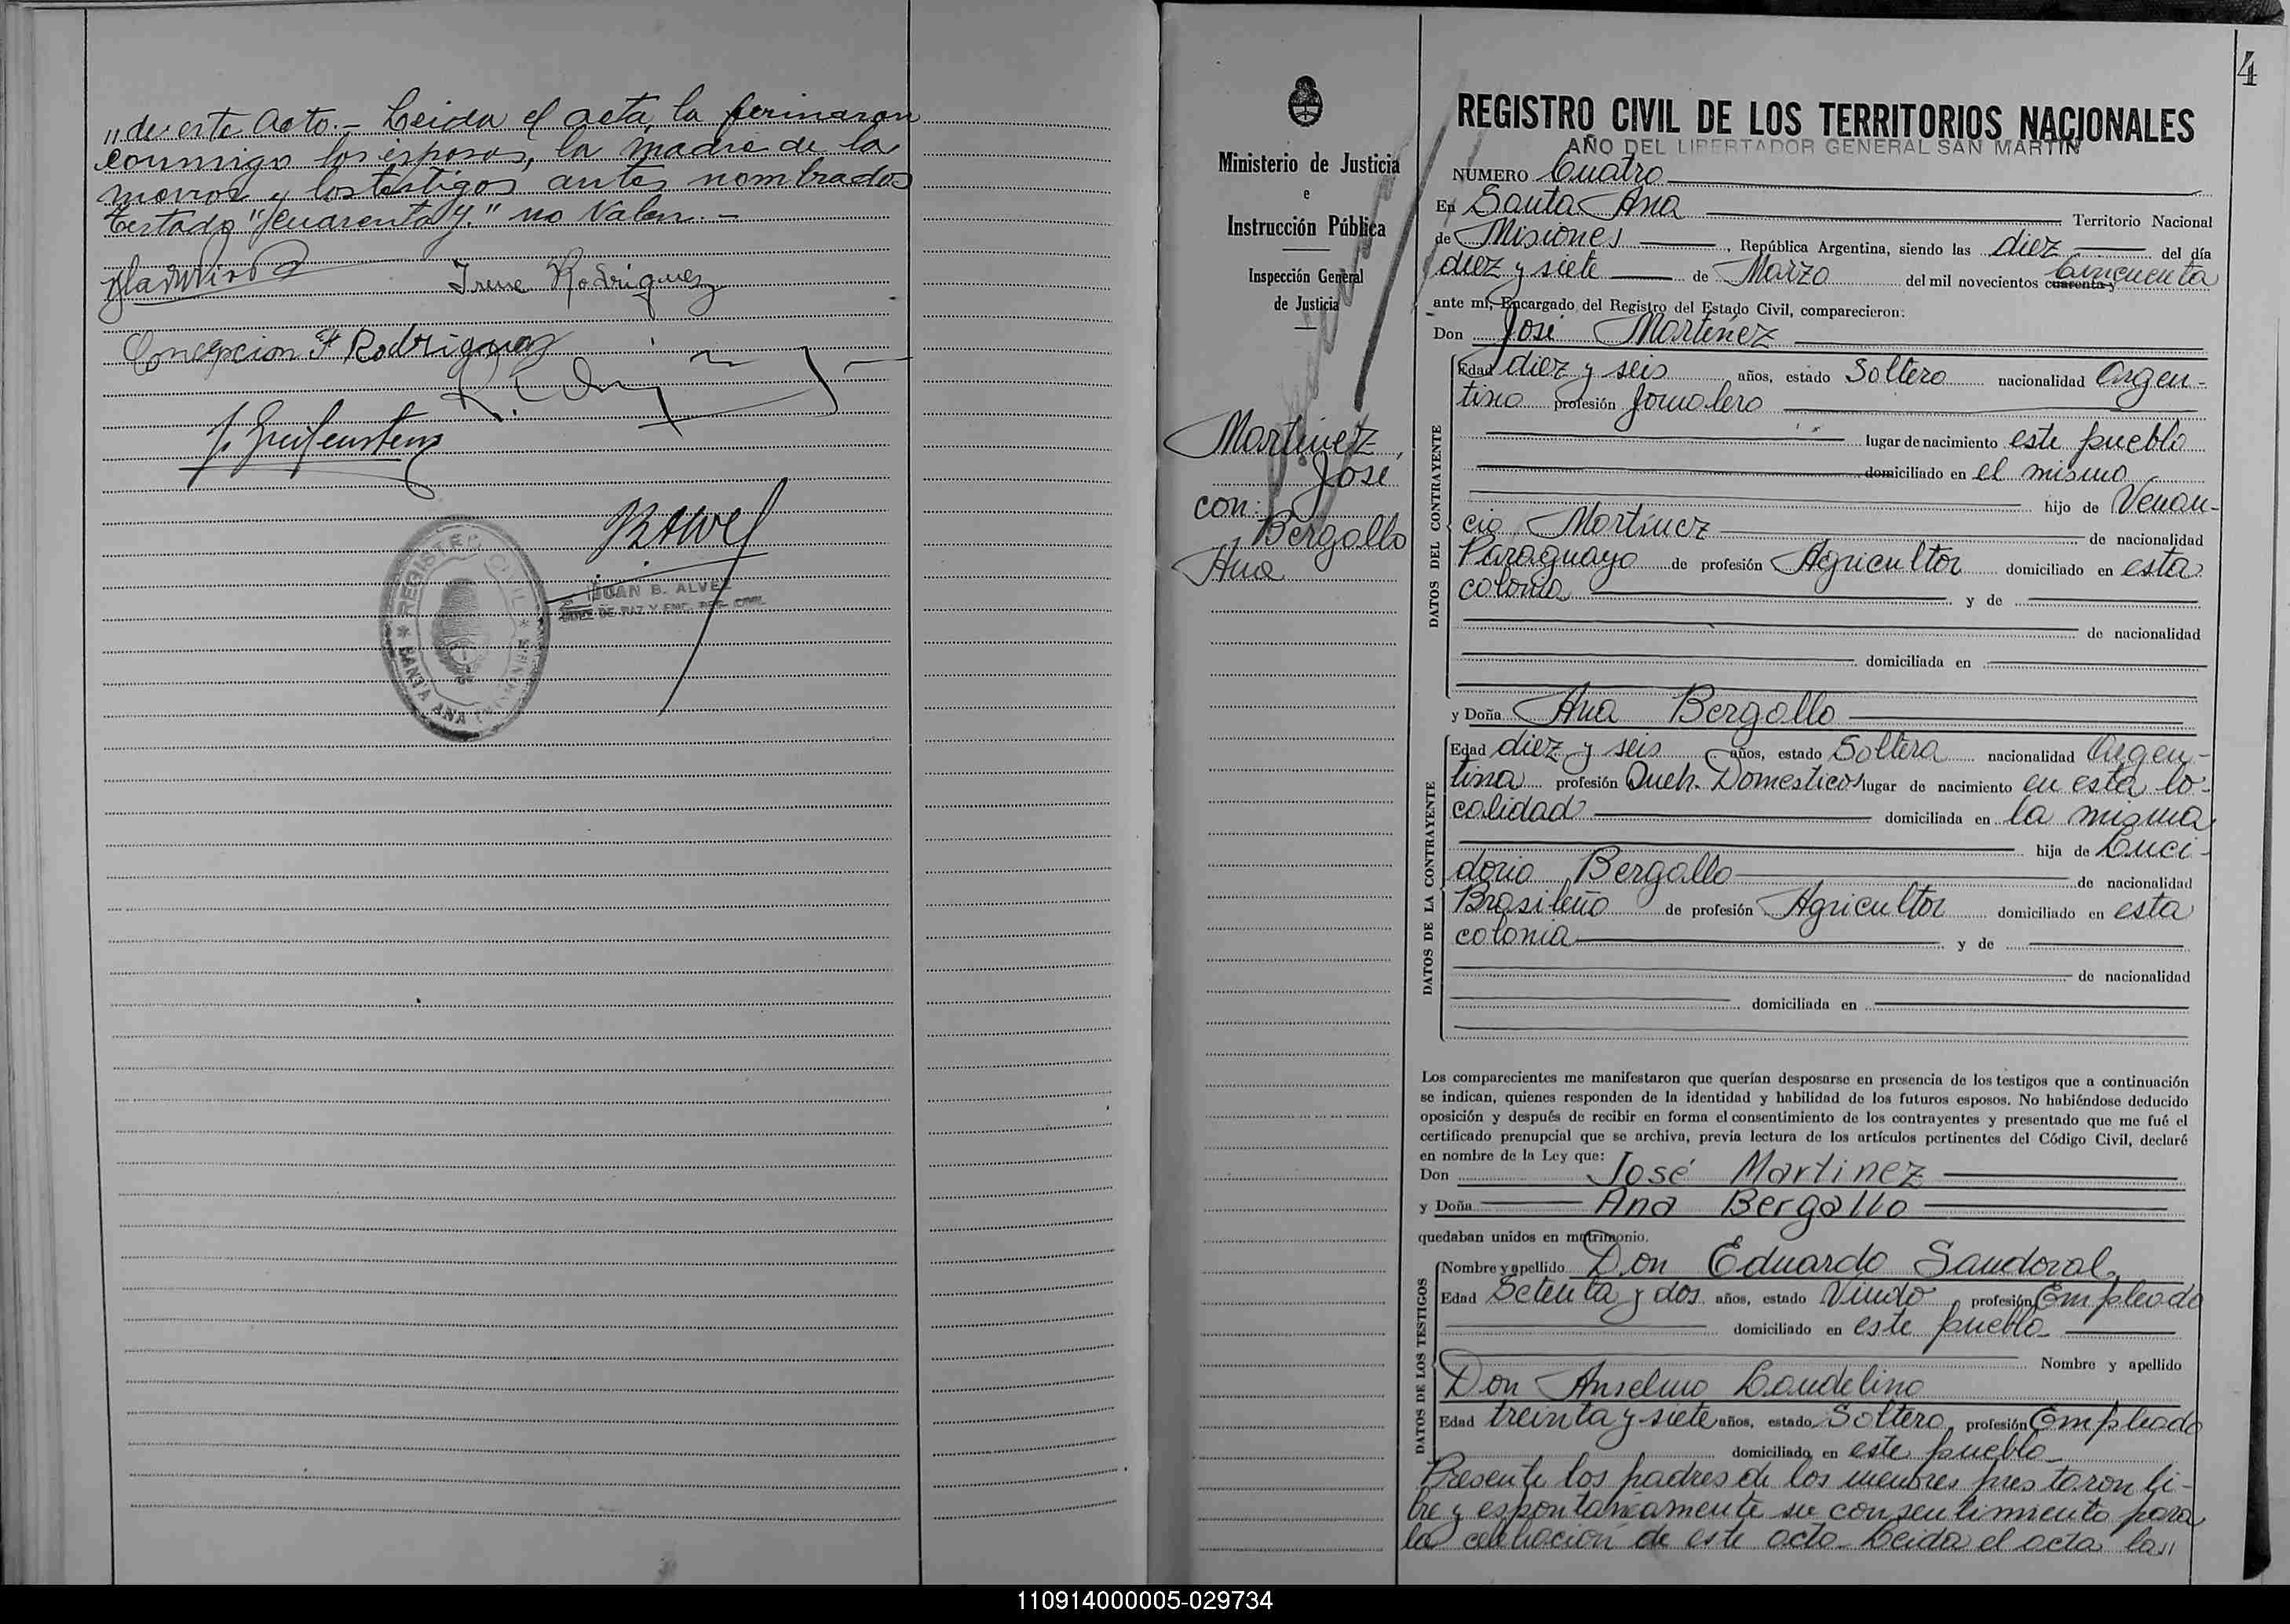 "de este Acto.- Leida el acta, la firmaron
conmigo los esposos, la madre de la
menor y los testigos antes nombrados
Testado "cuarenta y" no Valen.-
Irene Rodriguez
Concepcion F Rodriguez
J. Greifenstein
REGISTRO CIVIL
SANTA ANA (MISIONES)
JUAN B. ALVEZ
JUEZ DE PAZ Y ENC. REG. CIVIL
4
Ministerio de Justicia
e
Instrucción Pública
Inspección General
de Justicia
Martinez,
José
con:
Bergallo
Ana
REGISTRO CIVIL DE LOS TERRITORIOS NACIONALES
AÑO DEL LIBERTADOR GENERAL SAN MARTIN
NUMERO Cuatro
En Santa Ana Territorio Nacional
de Misiones, República Argentina, siendo las diez del día
diez y siete de Marzo del mil novecientos cuarenta y Cincuenta
ante mí, Encargado del Registro del Estado Civil, comparecieron:
Don José Martínez
DATOS DEL CONTRAYENTE
Edad diez y seis años, estado Soltero nacionalidad Argen-
tino profesión Jornalero
lugar de nacimiento este pueblo
domiciliado en el mismo
hijo de Venan-
cio Martínez de nacionalidad
Paraguayo de profesión Agricultor domiciliado en esta
colonia y de
de nacionalidad
domiciliada en
y Doña Ana Bergallo
DATOS DE LA CONTRAYENTE
Edad diez y seis años, estado Soltera nacionalidad Argen-
tina profesión Queh. Domesticos lugar de nacimiento en esta lo-
calidad domiciliada en la misma
hija de Luci-
dorio Bergallo de nacionalidad
Brasileño de profesión Agricultor domiciliado en esta
colonia y de
de nacionalidad
domiciliada en
Los comparecientes me manifestaron que querían desposarse en presencia de los testigos que a continuación
se indican, quienes responden de la identidad y habilidad de los futuros esposos. No habiéndose deducido
oposición y después de recibir en forma el consentimiento de los contrayentes y presentado que me fué el
certificado prenupcial que se archiva, previa lectura de los artículos pertinentes del Código Civil, declaré
en nombre de la Ley que:
Don José Martinez
y Doña Ana Bergallo
quedaban unidos en matrimonio.
DATOS DE LOS TESTIGOS
Nombre y apellido Don Eduardo Sandoval,
Edad Setenta y dos años, estado Viudo profesión Empleado
domiciliado en este pueblo
Nombre y apellido
Don Anselmo Candelino
Edad treinta y siete años, estado Soltero, profesión Empleado
domiciliado en este pueblo
Presente los padres de los menores prestaron li-
bre y espontaneamente su consentimiento para
la celebracion de este acto- Leida el acta la"
110914000005-029734